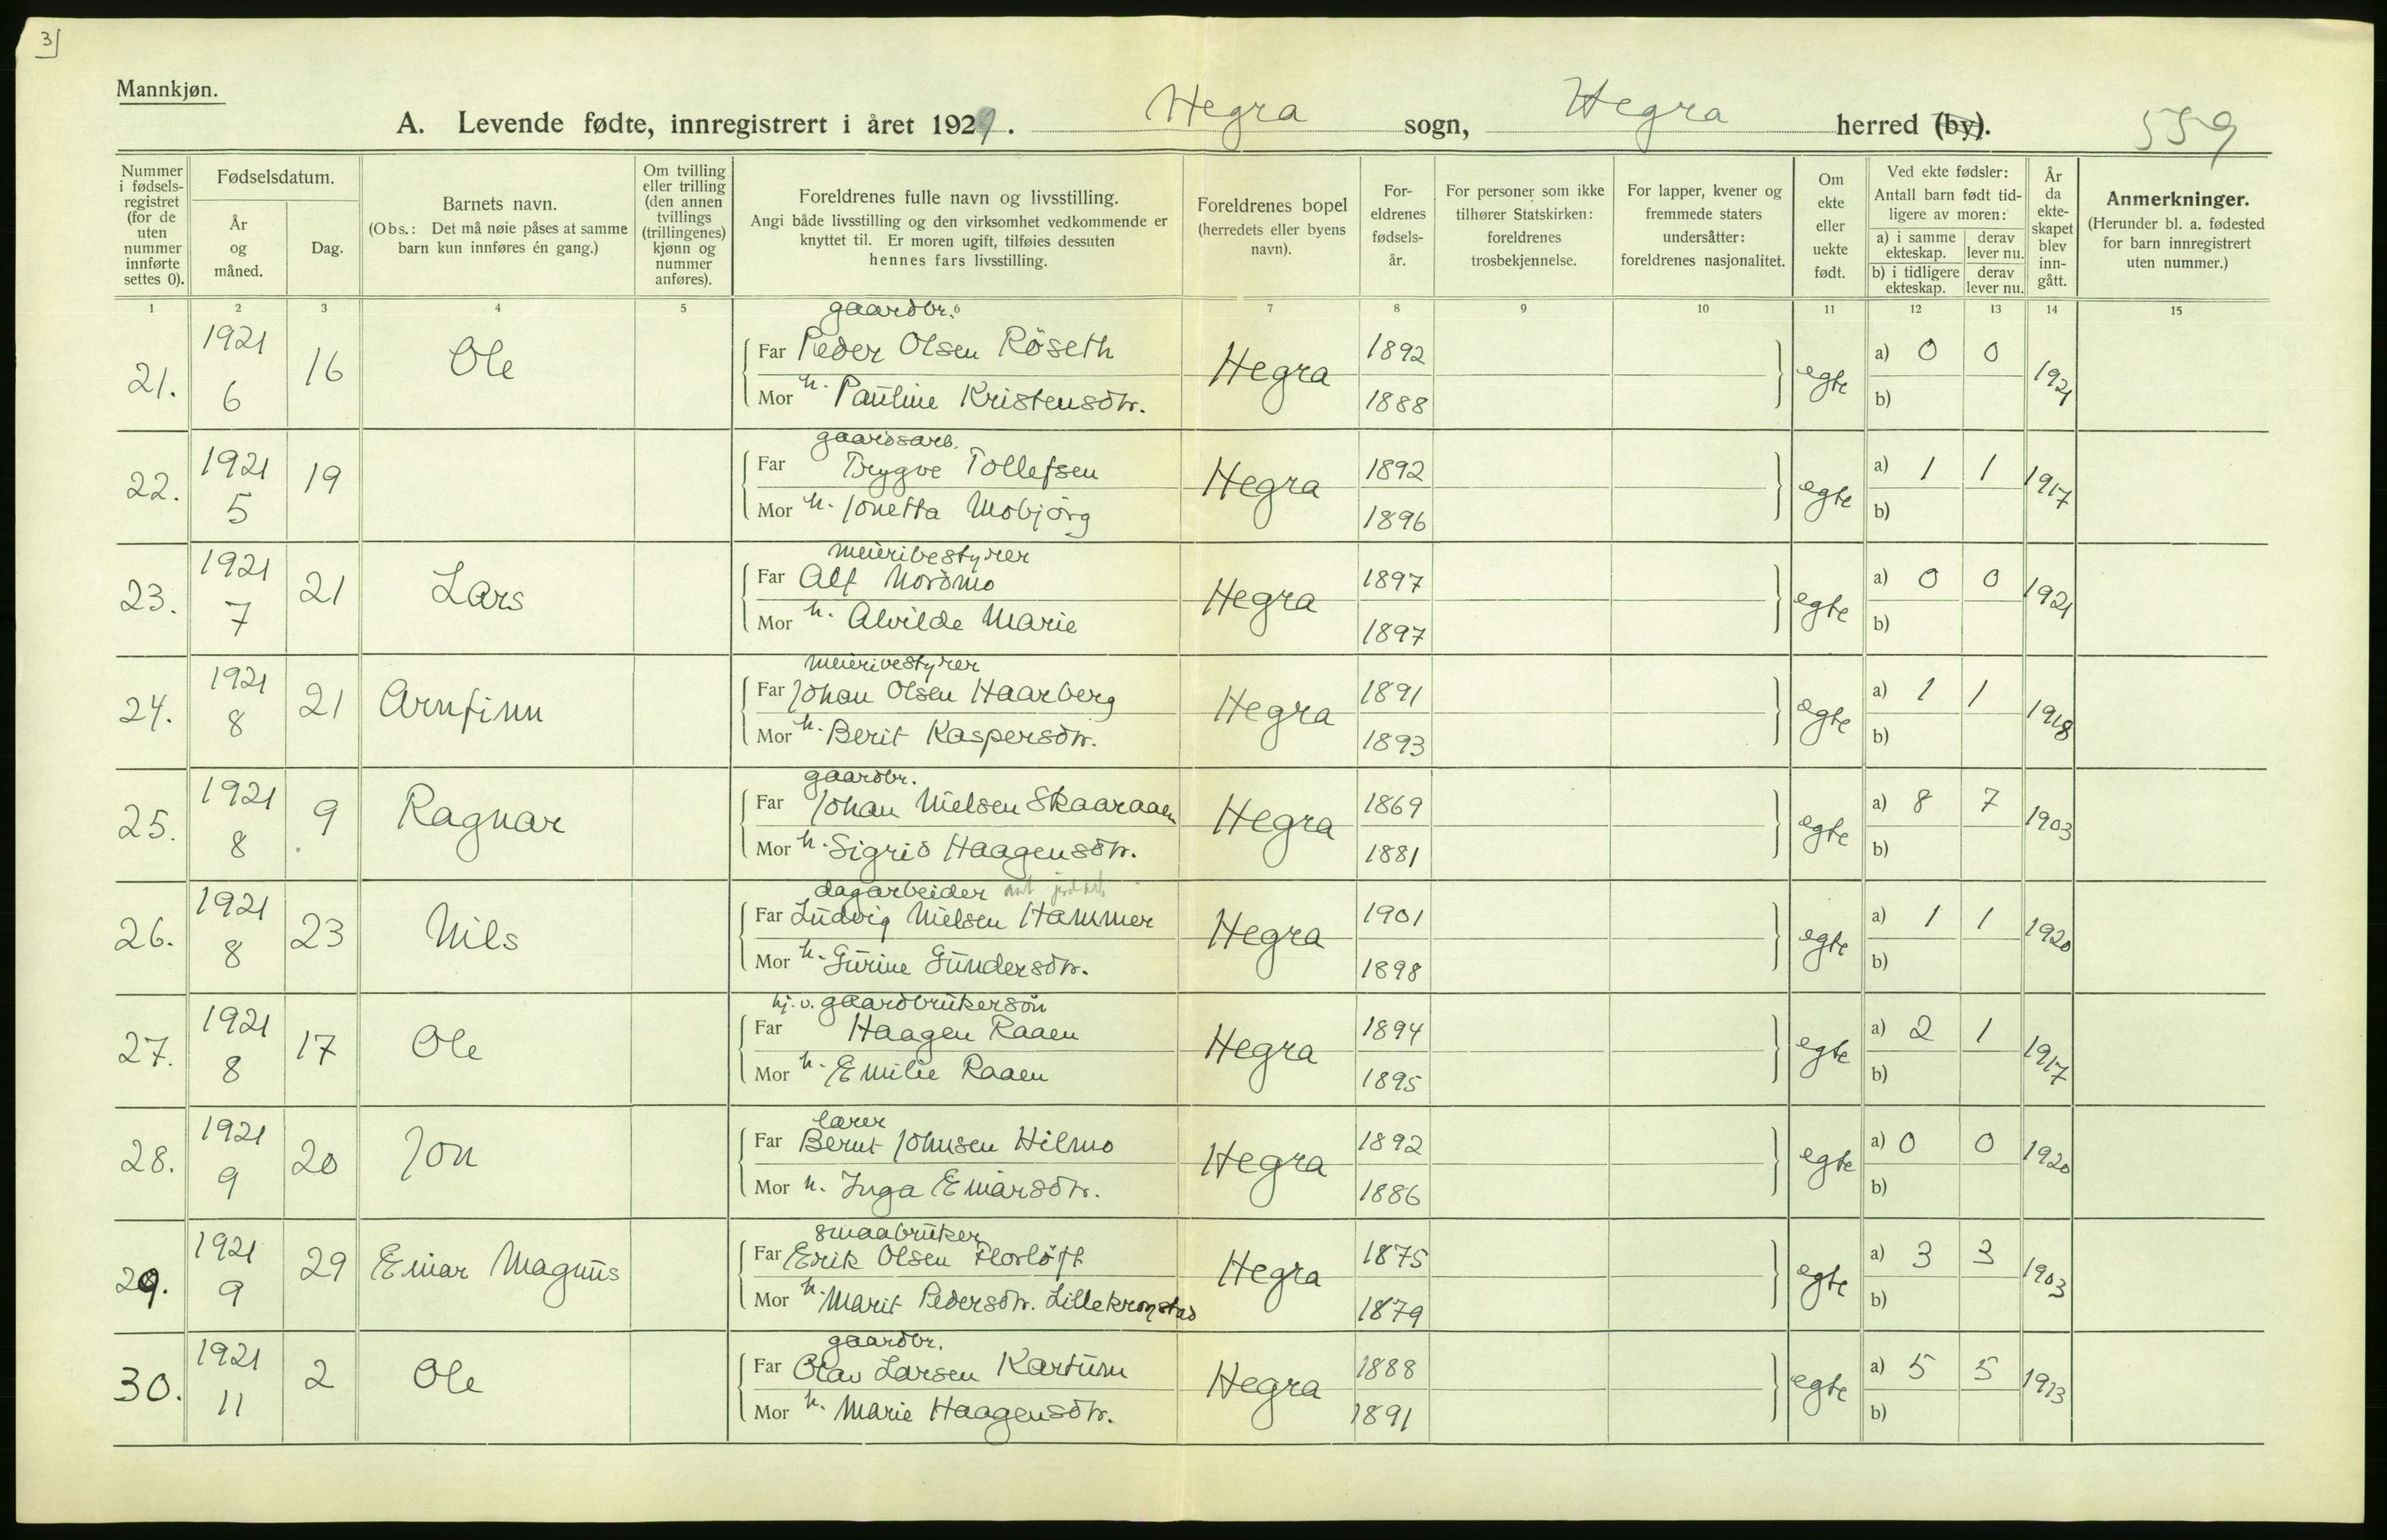 3
Mannkjøn.
A. Levende fødte, innregistrert i året 1921. Hegra sogn, Hegra herred (by). 559
Nummer i fødselsregistret (for de uten nummer innførte settes 0).
Fødselsdatum.
År og måned.
Dag.
Barnets navn.
(Obs.: Det må nøie påses at samme barn kun innføres én gang.)
Om tvilling eller trilling (den annen tvillings (trillingenes) kjønn og nummer anføres).
Foreldrenes fulle navn og livsstilling.
Angi både livsstilling og den virksomhet vedkommende er knyttet til. Er moren ugift, tilføies dessuten hennes fars livsstilling.
Foreldrenes bopel (herredets eller byens navn).
For-eldrenes fødsels-år.
For personer som ikke tilhører Statskirken: foreldrenes trosbekjennelse.
For lapper, kvener og fremmede staters undersåtter: foreldrenes nasjonalitet.
Om ekte eller uekte født.
Ved ekte fødsler: Antall barn født tidligere av moren:
a) i samme ekteskap. derav lever nu.
b) i tidligere ekteskap. derav lever nu.
År da ekteskapet blev inngått.
Anmerkninger.
(Herunder bl. a. fødested for barn innregistrert uten nummer.)
1 2 3 4 5 6 7 8 9 10 11 12 13 14 15
gaardbr.
21. 1921 6 16 Ole Far Peder Olsen Röseth Hegra 1892 egte a) 0 0 1921
Mor h. Pauline Kristensdtr. 1888 b)
gaardsarb.
22. 1921 5 19 Far Trygve Tollefsen Hegra 1892 egte a) 1 1 1917
Mor h. Jonetta Mobjörg 1896 b)
meieribestyrer
23. 1921 7 21 Lars Far Alf Nordmo Hegra 1897 egte a) 0 0 1921
Mor h. Alvilde Marie 1897 b)
meieribestyrer
24. 1921 8 21 Arnfinn Far Johan Olsen Haarberg Hegra 1891 egte a) 1 1 1918
Mor h. Berit Kaspersdtr. 1893 b)
gaardbr.
25. 1921 8 9 Ragnar Far Johan Nielsen Skaaraaen Hegra 1869 egte a) 8 7 1903
Mor h. Sigrid Haagensdtr. 1881 b)
dagarbeider
26. 1921 8 23 Nils Far Ludvig Nielsen Hammer Hegra 1901 egte a) 1 1 1920
Mor h. Gurine Gundersdtr. 1898 b)
hj. v. gaardbrukersön
27. 1921 8 17 Ole Far Haagen Raaen Hegra 1894 egte a) 2 1 1917
Mor h. Emilie Raaen 1895 b)
lærer
28. 1921 9 20 Jon Far Bernt Johnsen Hilmo Hegra 1892 egte a) 0 0 1920
Mor h. Inga Einarsdtr. 1886 b)
smaabruker
29. 1921 9 29 Einar Magnus Far Erik Olsen Florlöft Hegra 1875 egte a) 3 3 1903
Mor h. Marit Pedersdtr. Lillekronstad 1879 b)
gaardbr.
30. 1921 11 2 Ole Far Olav Larsen Kartum Hegra 1888 egte a) 5 5 1913
Mor h. Marie Haagensdtr. 1891 b)